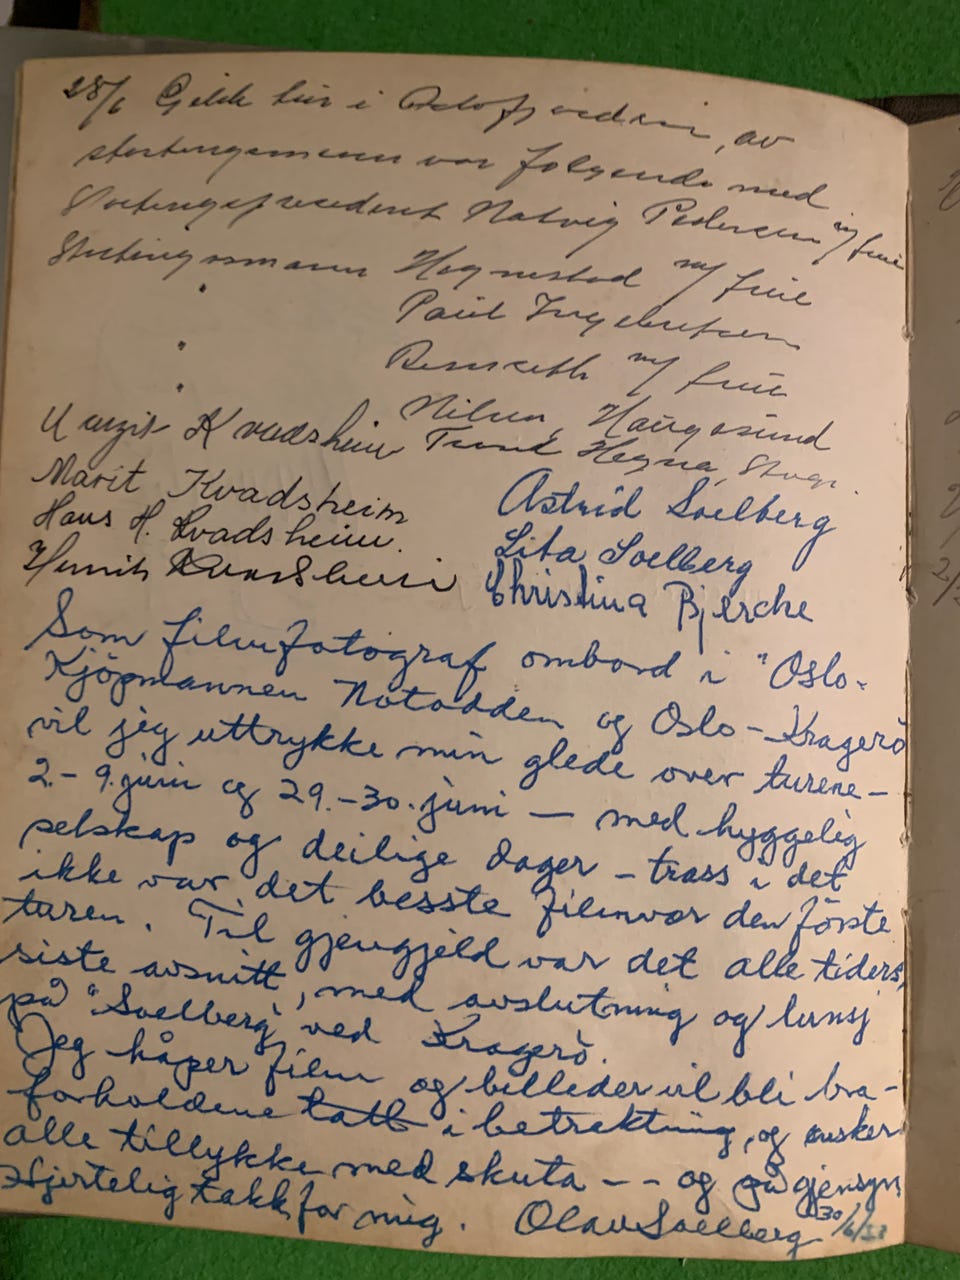 28/6 Gjekk tur i Oslofjorden, av
stortingsmenn var følgende med
Stortingspresident Natvig Pedersen m/ frue
Stortingsmann Hognestad m/ frue
" Paul Ingebretsen
" Remseth m/ frue
" Nilsen, Haugesund
Margit Kvadsheim Trond Hegna, Stvgr.
Marit Kvadsheim Astrid Soelberg
Hans H. Kvadsheim. Lita Soelberg
Henrik Kvadsheim Christina Bjercke
Som filmfotograf ombord i "Oslo-
Kjöpmannen Notodden og Oslo-Kragerö
vil jeg uttrykke min glede over turene-
2.-9. juni og 29.-30. juni - med hyggelig
selskap og deilige dager - trass i det
ikke var det besste filmvær den förste
turen. Til gjengjeld var det alle tiders,
siste avsnitt, med avslutning og lunsj
på "Soelberg" ved Kragerö.
Jeg håper film og billeder vil bli bra-
forholdene tatt i betraktning, og önsker
alle tillykke med skuta -- og på gjensyn
Hjertelig takk for meg. Olav Soelberg 30/6/53